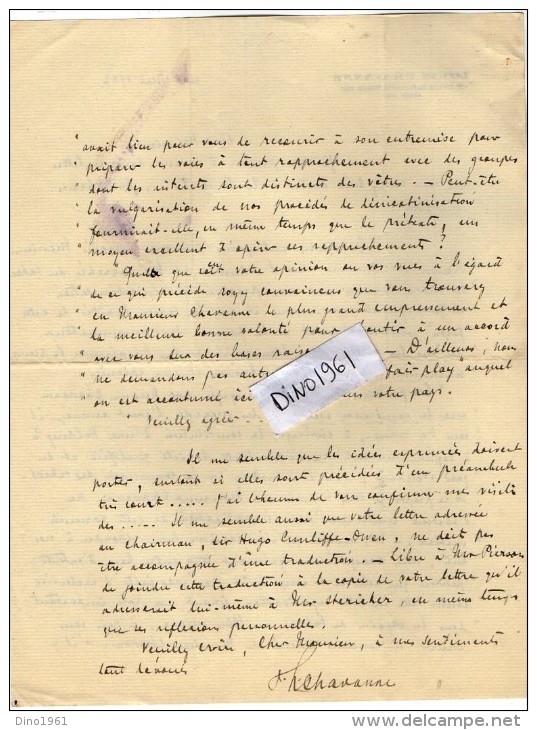 " aurait lieu pour vous de recourir à son entremise pour
" préparer les voies à tout rapprochement avec des groupes
" dont les intérêts sont distincts des vôtres. — Peut-être
" la vulgarisation de nos procédés de dénicotinisation
" fournirait-elle, en même temps que le prétexte, un
" moyen excellent d'opérer ces rapprochements ?
" Quelle que soit votre opinion ou vos vues à l'égard
" de ce qui précède soyez convaincus que vous trouverez
" en Monsieur Chavanne le plus grand empressement et
" la meilleure bonne volonté pour aboutir à un accord
" avec vous sur des bases — D'ailleurs, nous
" ne demandons pas "fair-play" auquel
" on est accoutumé ici votre pays.
" Veuillez agréer...
Il me semble que les idées exprimées doivent
porter, surtout si elles sont précédées d'un préambule
très court..... J'ai l'honneur de vous confirmer mes visites
des..... Il me semble aussi que votre lettre adressée
au Chairman, Sir Hugo Cunliffe-Owen, ne doit pas
être accompagnée d'une traduction. — Libre à Mr Pierson
de joindre cette traduction à la copie de votre lettre qu'il
adresserait lui-même à Mr Stericker, en même temps
que ses réflexions personnelles.
Veuillez croire, Cher Monsieur, à mes sentiments
tout dévoués
Chavanne
DINO1961
Dino1961
www.delcampe.net